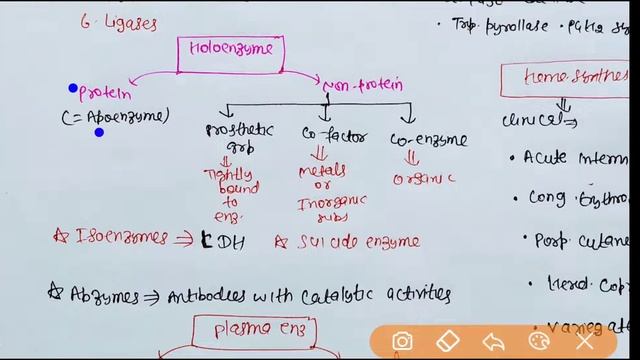 6. Ligases
Holoenzyme
protein
(= Apoenzyme)
Non-protein
prosthetic
grp
Tightly
bound
to
enz.
Co-factor
metals
or
Inorganic
subs
Co-enzyme
organic
☆ Isoenzymes ⇒ LDH
☆ Suicide enzyme
☆ Abzymes ⇒ Antibodies with catalytic activities
plasma enz
• Trp. pyrollase • PGH2
Heme synthes
clinical ⇒
• Acute interm
• Cong. Erythro
• Porp. cutane
• Hered. Cop
• Variegate